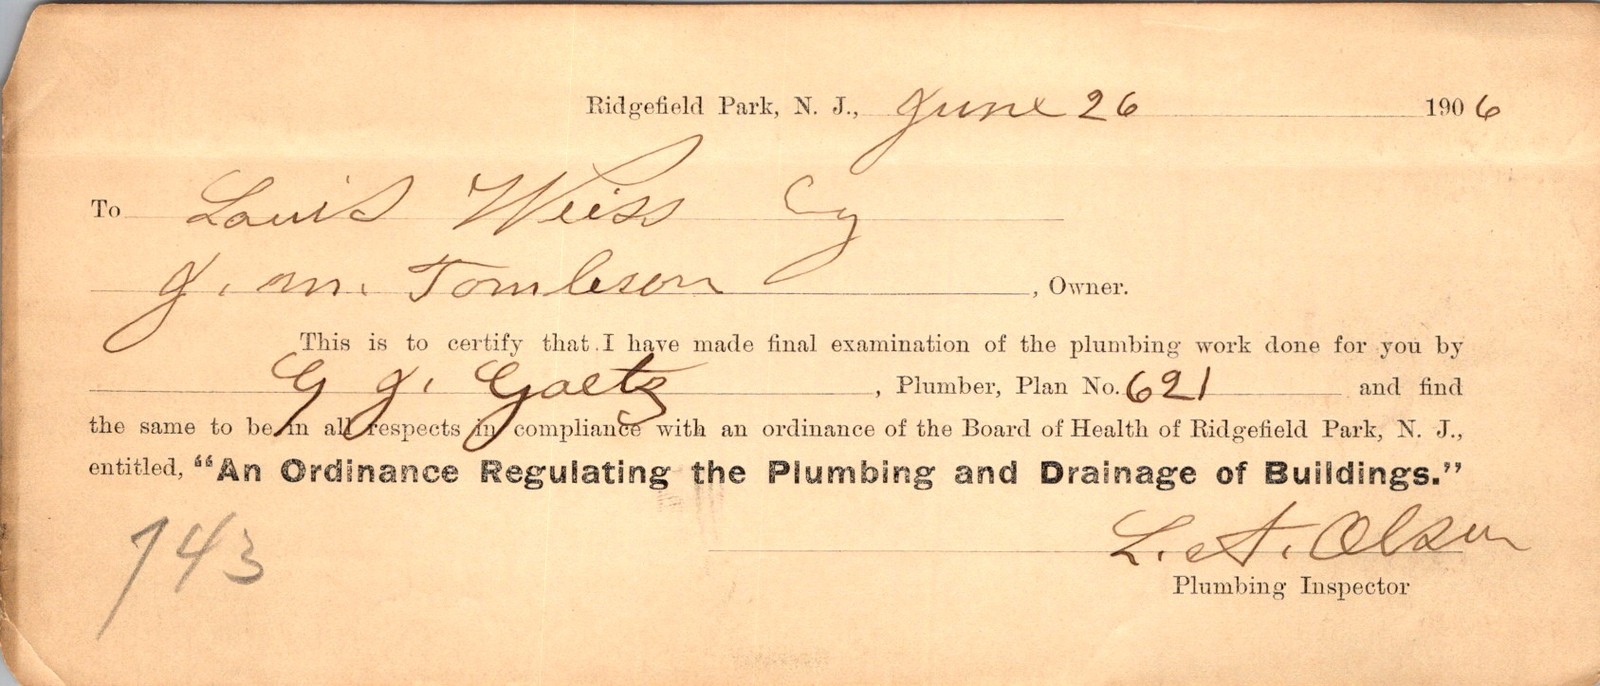 Ridgefield Park, N. J., June 26 1906
To Louis Weiss
J. M. Tomleson, Owner.
This is to certify that I have made final examination of the plumbing work done for you by
G J. Goetz, Plumber, Plan No. 621 and find
the same to be in all respects in compliance with an ordinance of the Board of Health of Ridgefield Park, N. J.,
entitled, “An Ordinance Regulating the Plumbing and Drainage of Buildings.”
743
L. A. Olsen
Plumbing Inspector